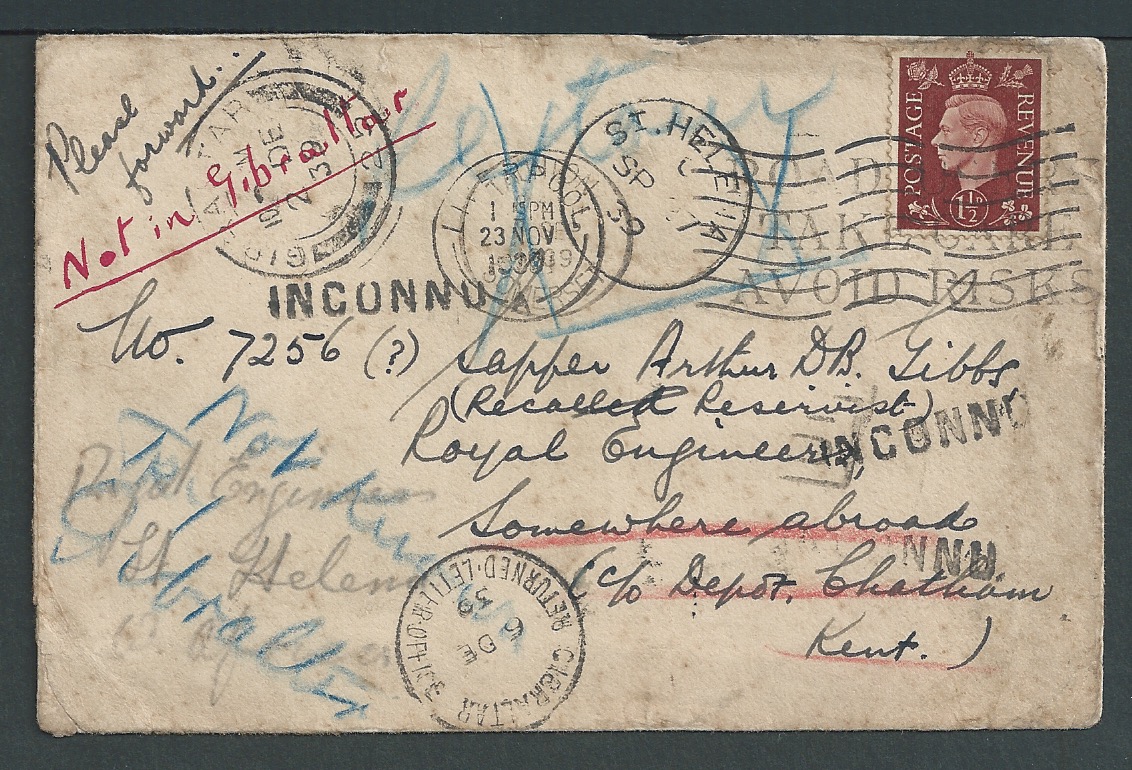 Please
forward.
Not in Gibraltar
GIBRALTAR
2 DE
39
ST. HELENA
SP
39
LIVERPOOL
23 NOV
1939
A
POSTAGE
REVENUE
1½
ROAD
TAKE CARE
AVOID RISKS
INCONNU
No. 7256 (?) Sapper Arthur D.B. Gibbs
(Recalled Reservist)
Royal Engineers,
INCONNU
Somewhere abroad
INCONNU
(c/o Depot, Chatham
Kent.)
Not
Gibraltar
Royal Engineers
St Helena
GIBRALTAR
RETURNED·LETTER·OFFICE
6 DE
39